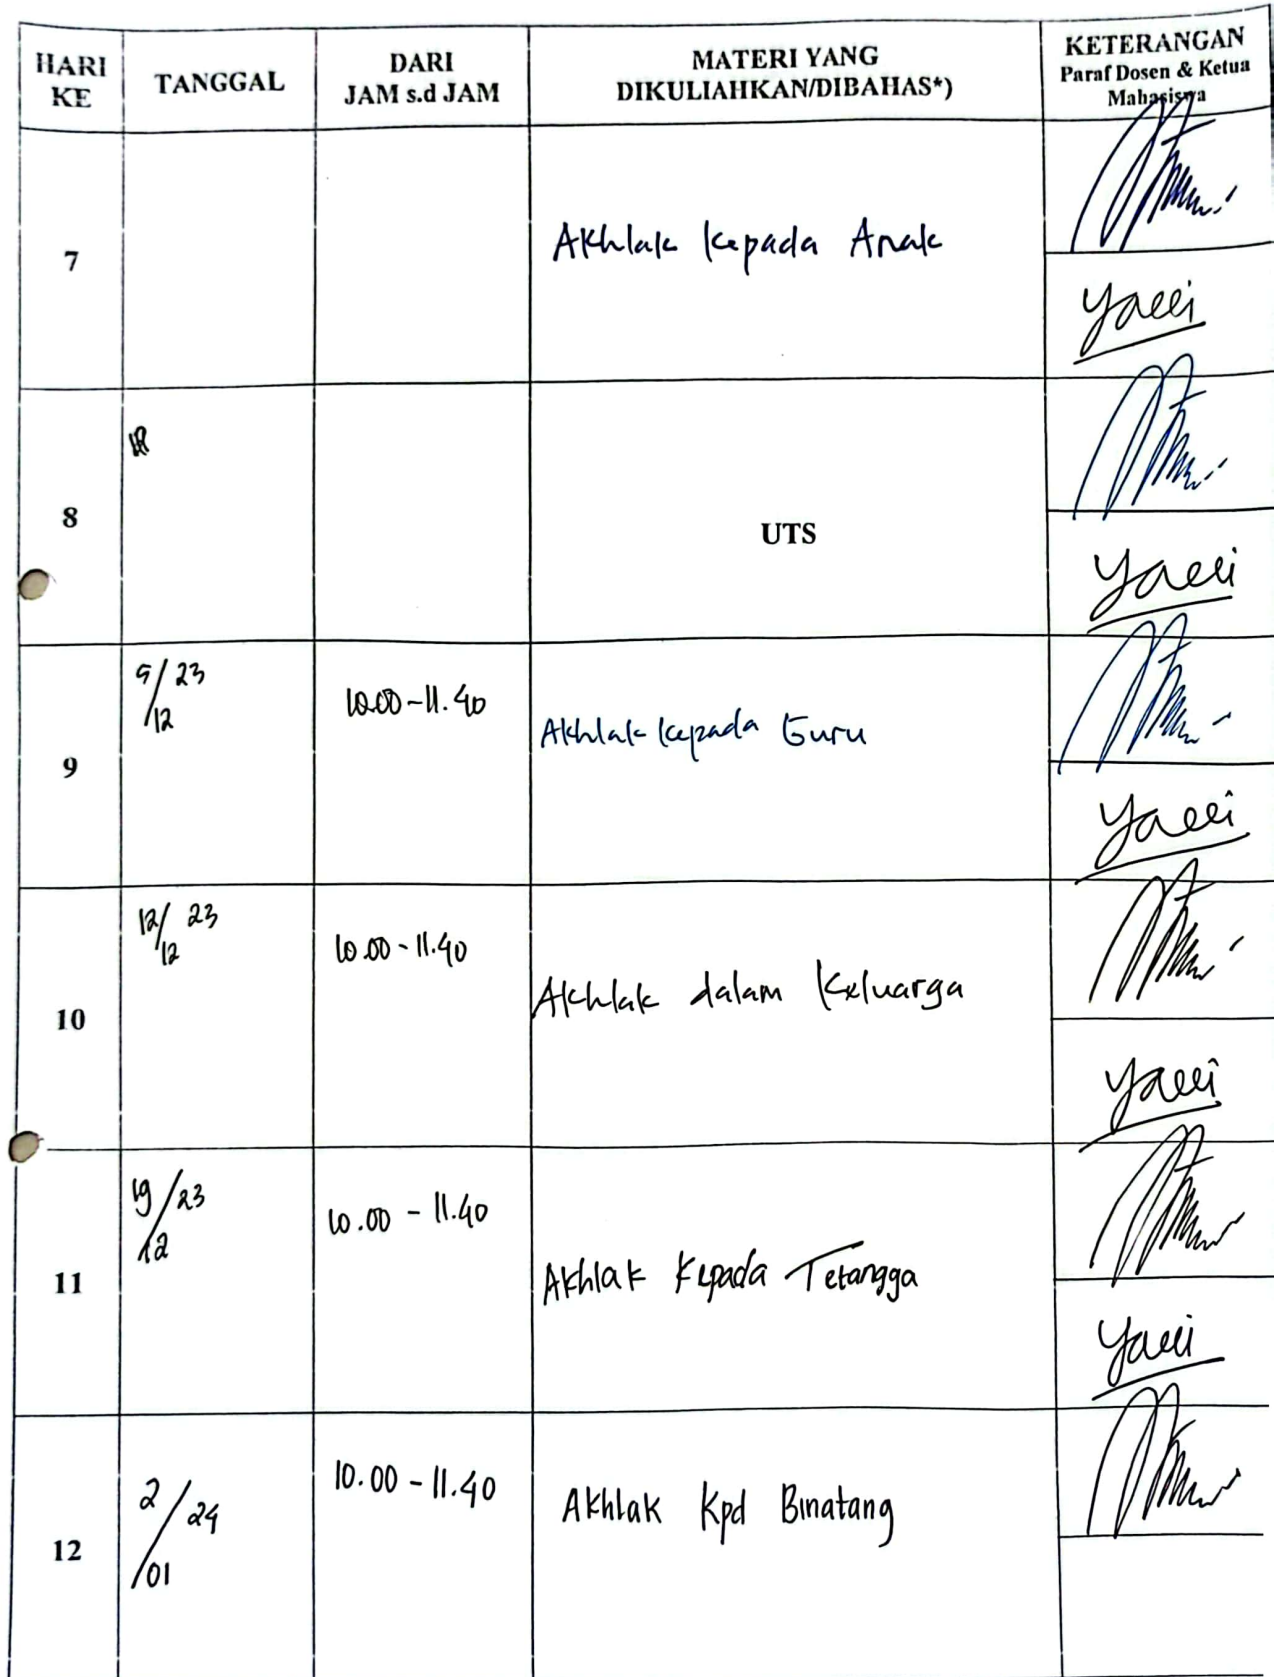 HARI KE
TANGGAL
DARI
JAM s.d JAM
MATERI YANG
DIKULIAHKAN/DIBAHAS*)
KETERANGAN
Paraf Dosen & Ketua
Mahasiswa
7
Akhlak kepada Anak
yaeei
8
UTS
yaeei
9
5/12 23
10.00-11.40
Akhlak kepada Guru
yaeei
10
12/12 23
10.00-11.40
Akhlak dalam Keluarga
yaeei
11
19/12 23
10.00 - 11.40
Akhlak Kepada Tetangga
yaeei
12
2/01 24
10.00 - 11.40
Akhlak Kpd Binatang